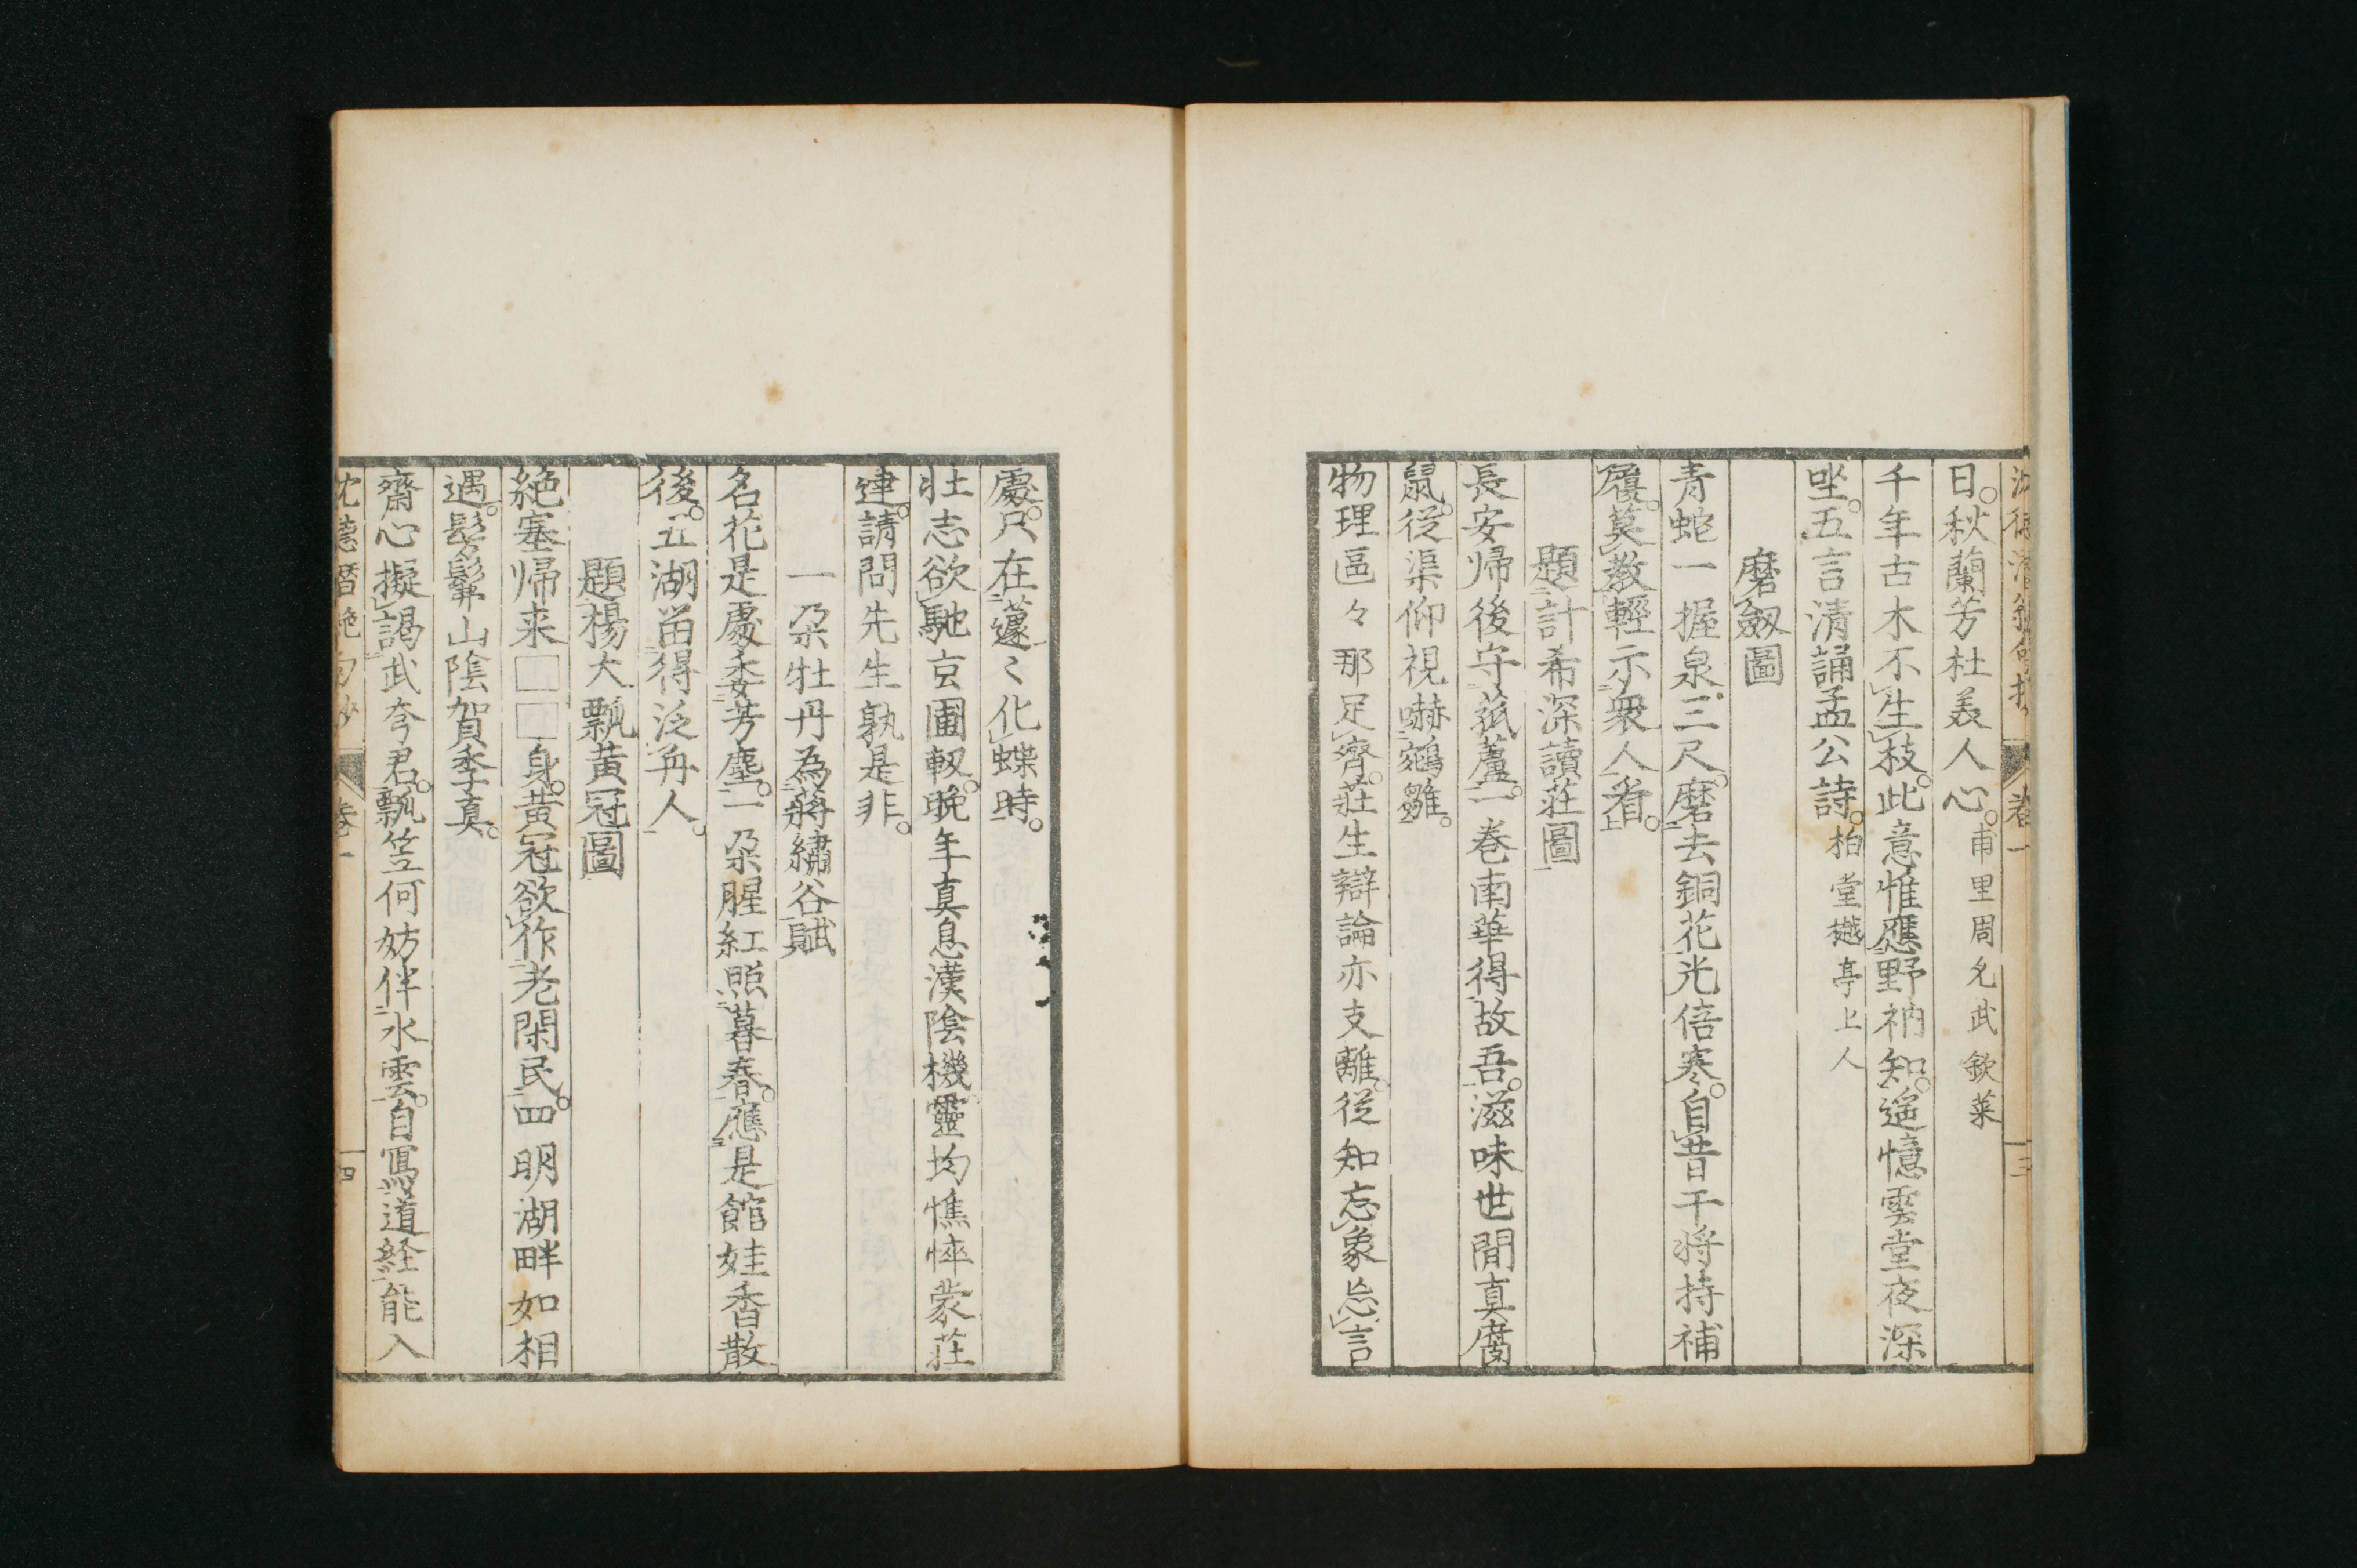 日。秋蘭芳杜美人心。甫里周允武欽萊
千年古木不生枝。此意惟應野衲知。遥憶雲堂夜深
坐。五言清誦孟公詩。柏堂樾亭上人
磨劔圖
青蛇一握泉三尺。磨去銅花光倍寒。自昔干将持補
履。莫教輕示衆人看。
題計希深讀莊圖
長安帰後守菰蘆。一巻南華得故吾。滋味世間真腐
鼠。従渠仰視嚇鵷雛。
物理區々那足齊。莊生辯論亦支離。従知忘象忘言
處。只在蘧〻化蝶時。
壮志欲馳京國軔。晩年真息漢陰機。靈均憔悴蒙莊
達。請問先生孰是非。
一朶牡丹為蒋繡谷賦
名花是處委芳塵。一朶腥紅照暮春。應是館娃香散
後。五湖畄得泛舟人。
題楊大瓢黄冠圖
絶塞帰来□□身。黄冠欲作老閑民。四明湖畔如相
遇。髣髴山陰賀季真。
齋心擬謁武夸君。瓢笠何妨伴水雲。自寫道経能入
沈德潛絶句抄 巻一 四